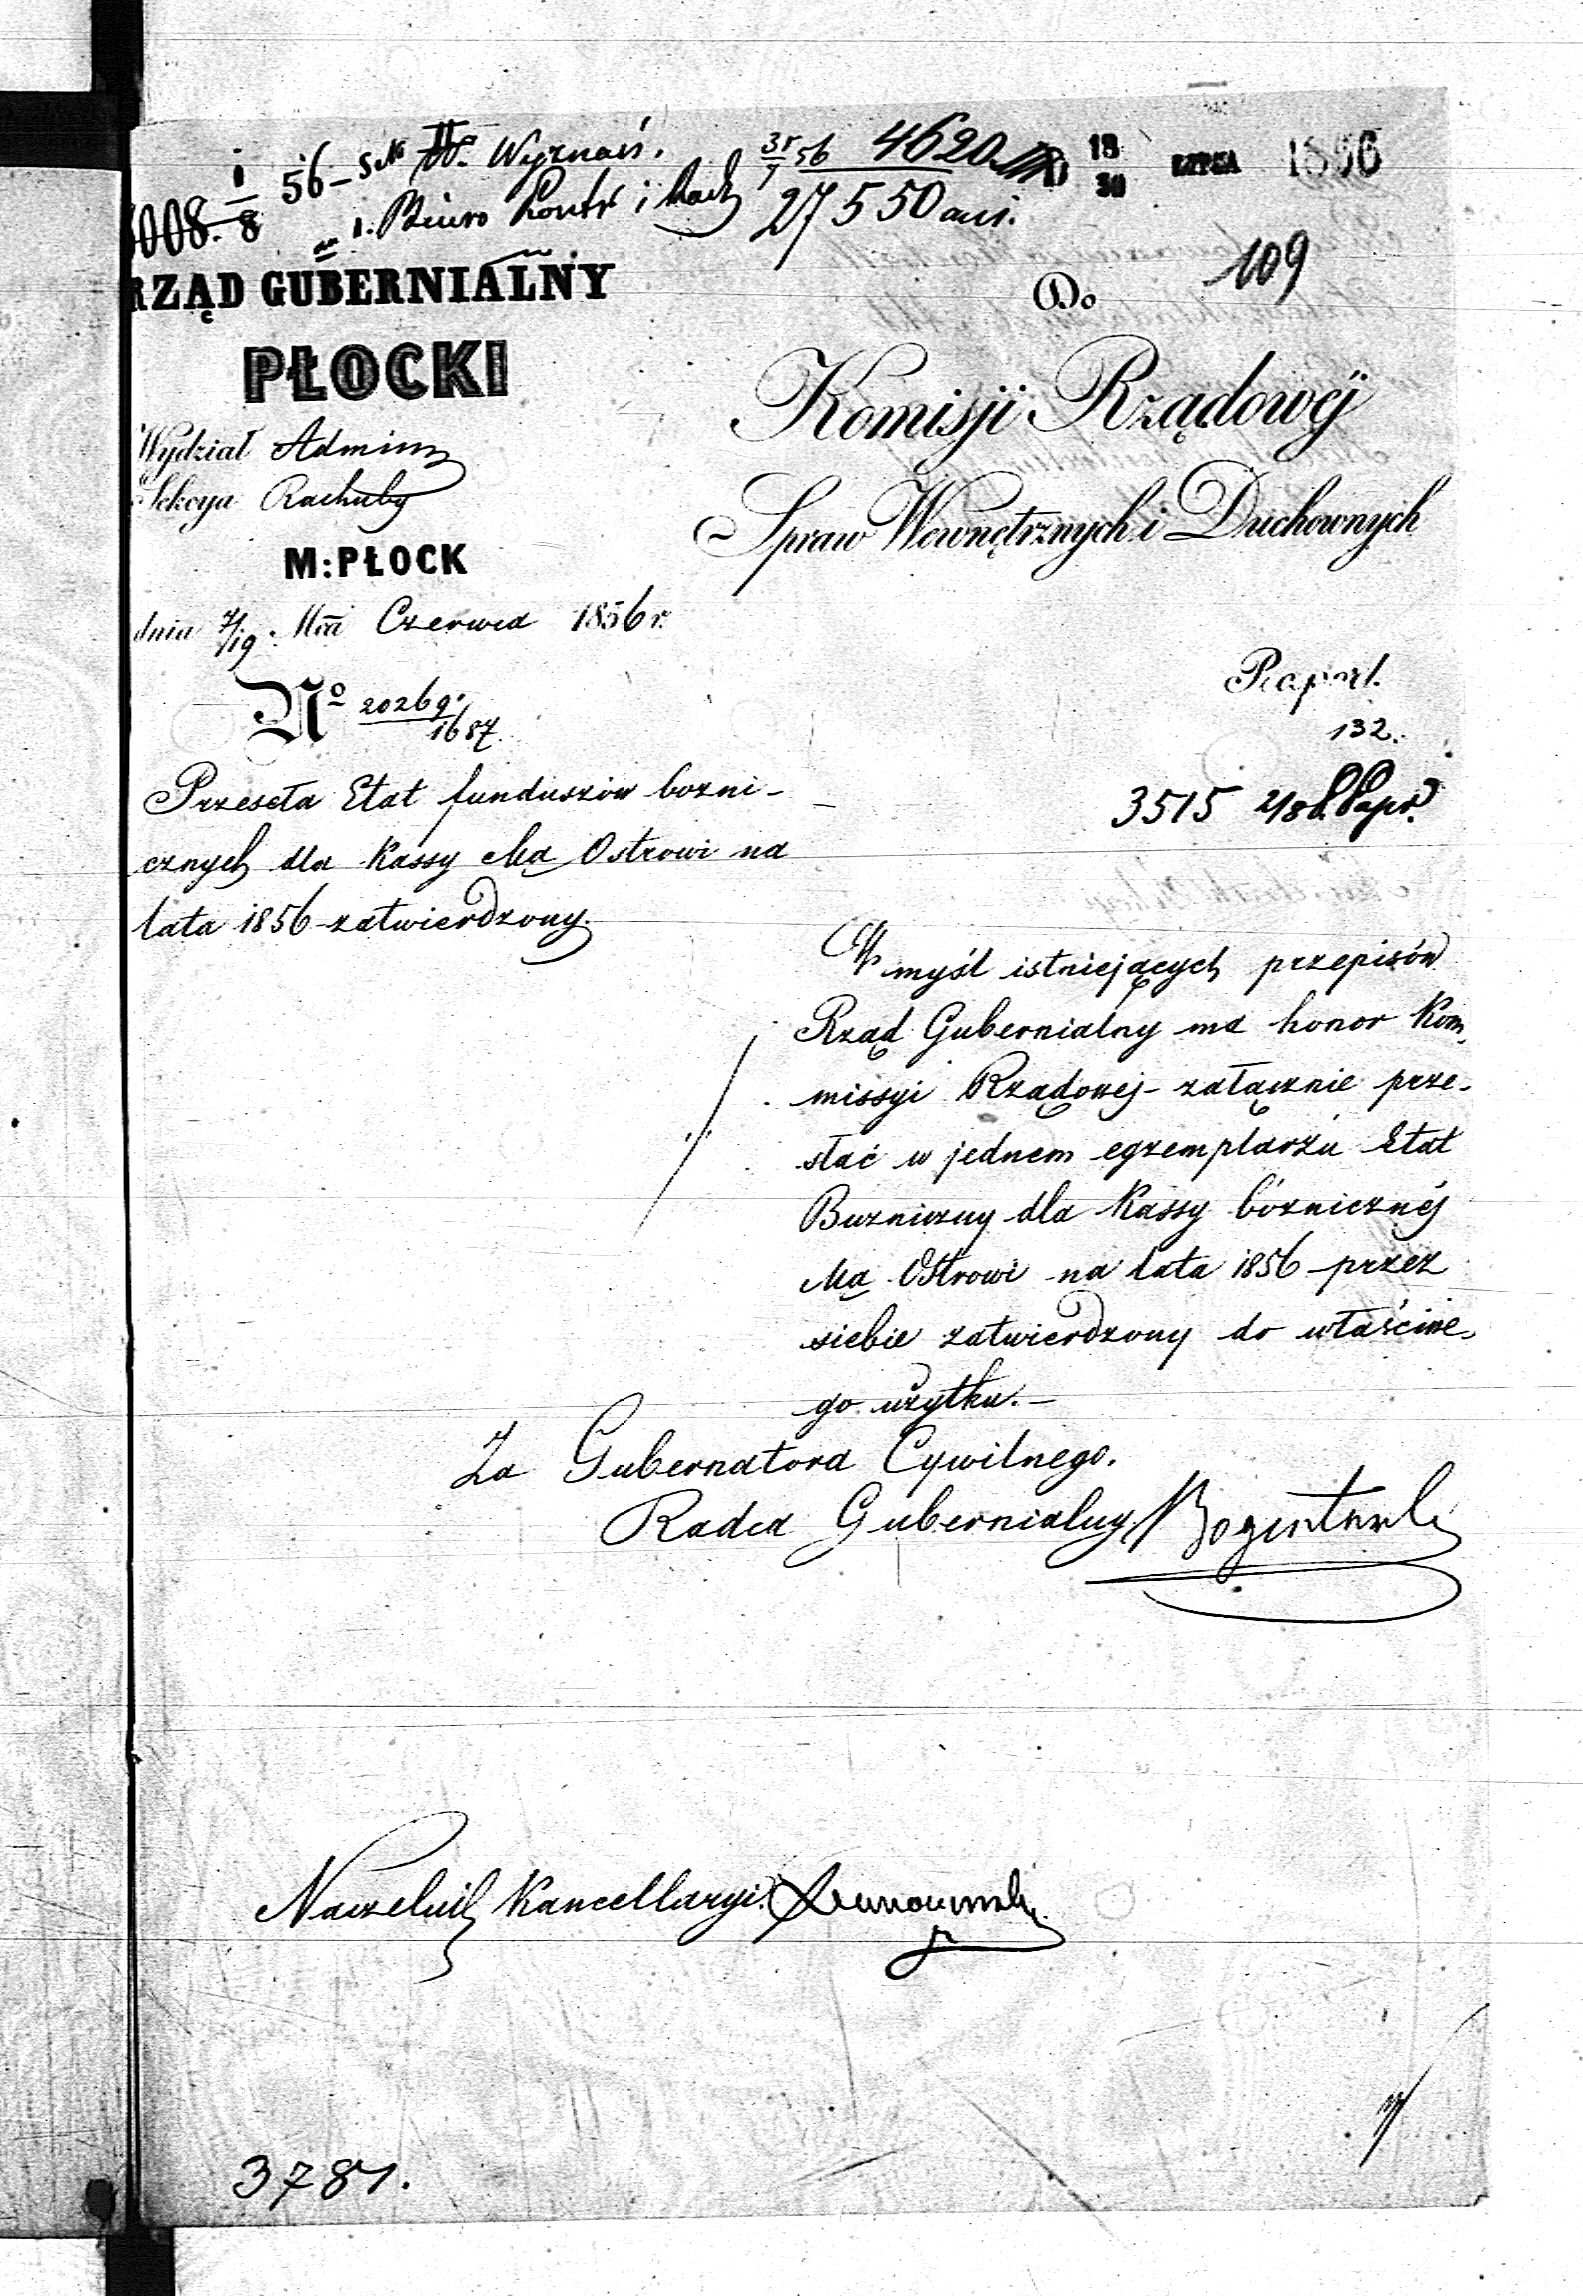 56 Wyznań. 4620 18/30 LIPCA 1856
1. Biuro Kontr i Rach 27550
109
RZĄD GUBERNIALNY
PŁOCKI
Wydział Admin
Sekcya Rachuby
M: PŁOCK
dnia 7/19 Mca Czerwca 1856 r.
No 20269/1687.
Przeseła Etat funduszów bożni-
cznych dla Kassy Ma Ostrowi na
lata 1856 zatwierdzony.
Do
Komisji Rządowéj
Spraw Wewnętrznych i Duchownych
Raport.
132.
3515
W myśl istniejących przepisów
Rząd Gubernialny ma honor Kom-
missyi Rządowej załącznie prze-
słać w jednem egzemplarzu Etat
Buzniczny dla Kassy bóżnicznéj
Ma Ostrowi na lata 1856 przez
siebie zatwierdzony do właściwe-
go użytku.—
Za Gubernatora Cywilnego.
Radca Gubernialny
Naczelnik Kancellaryi
3781.